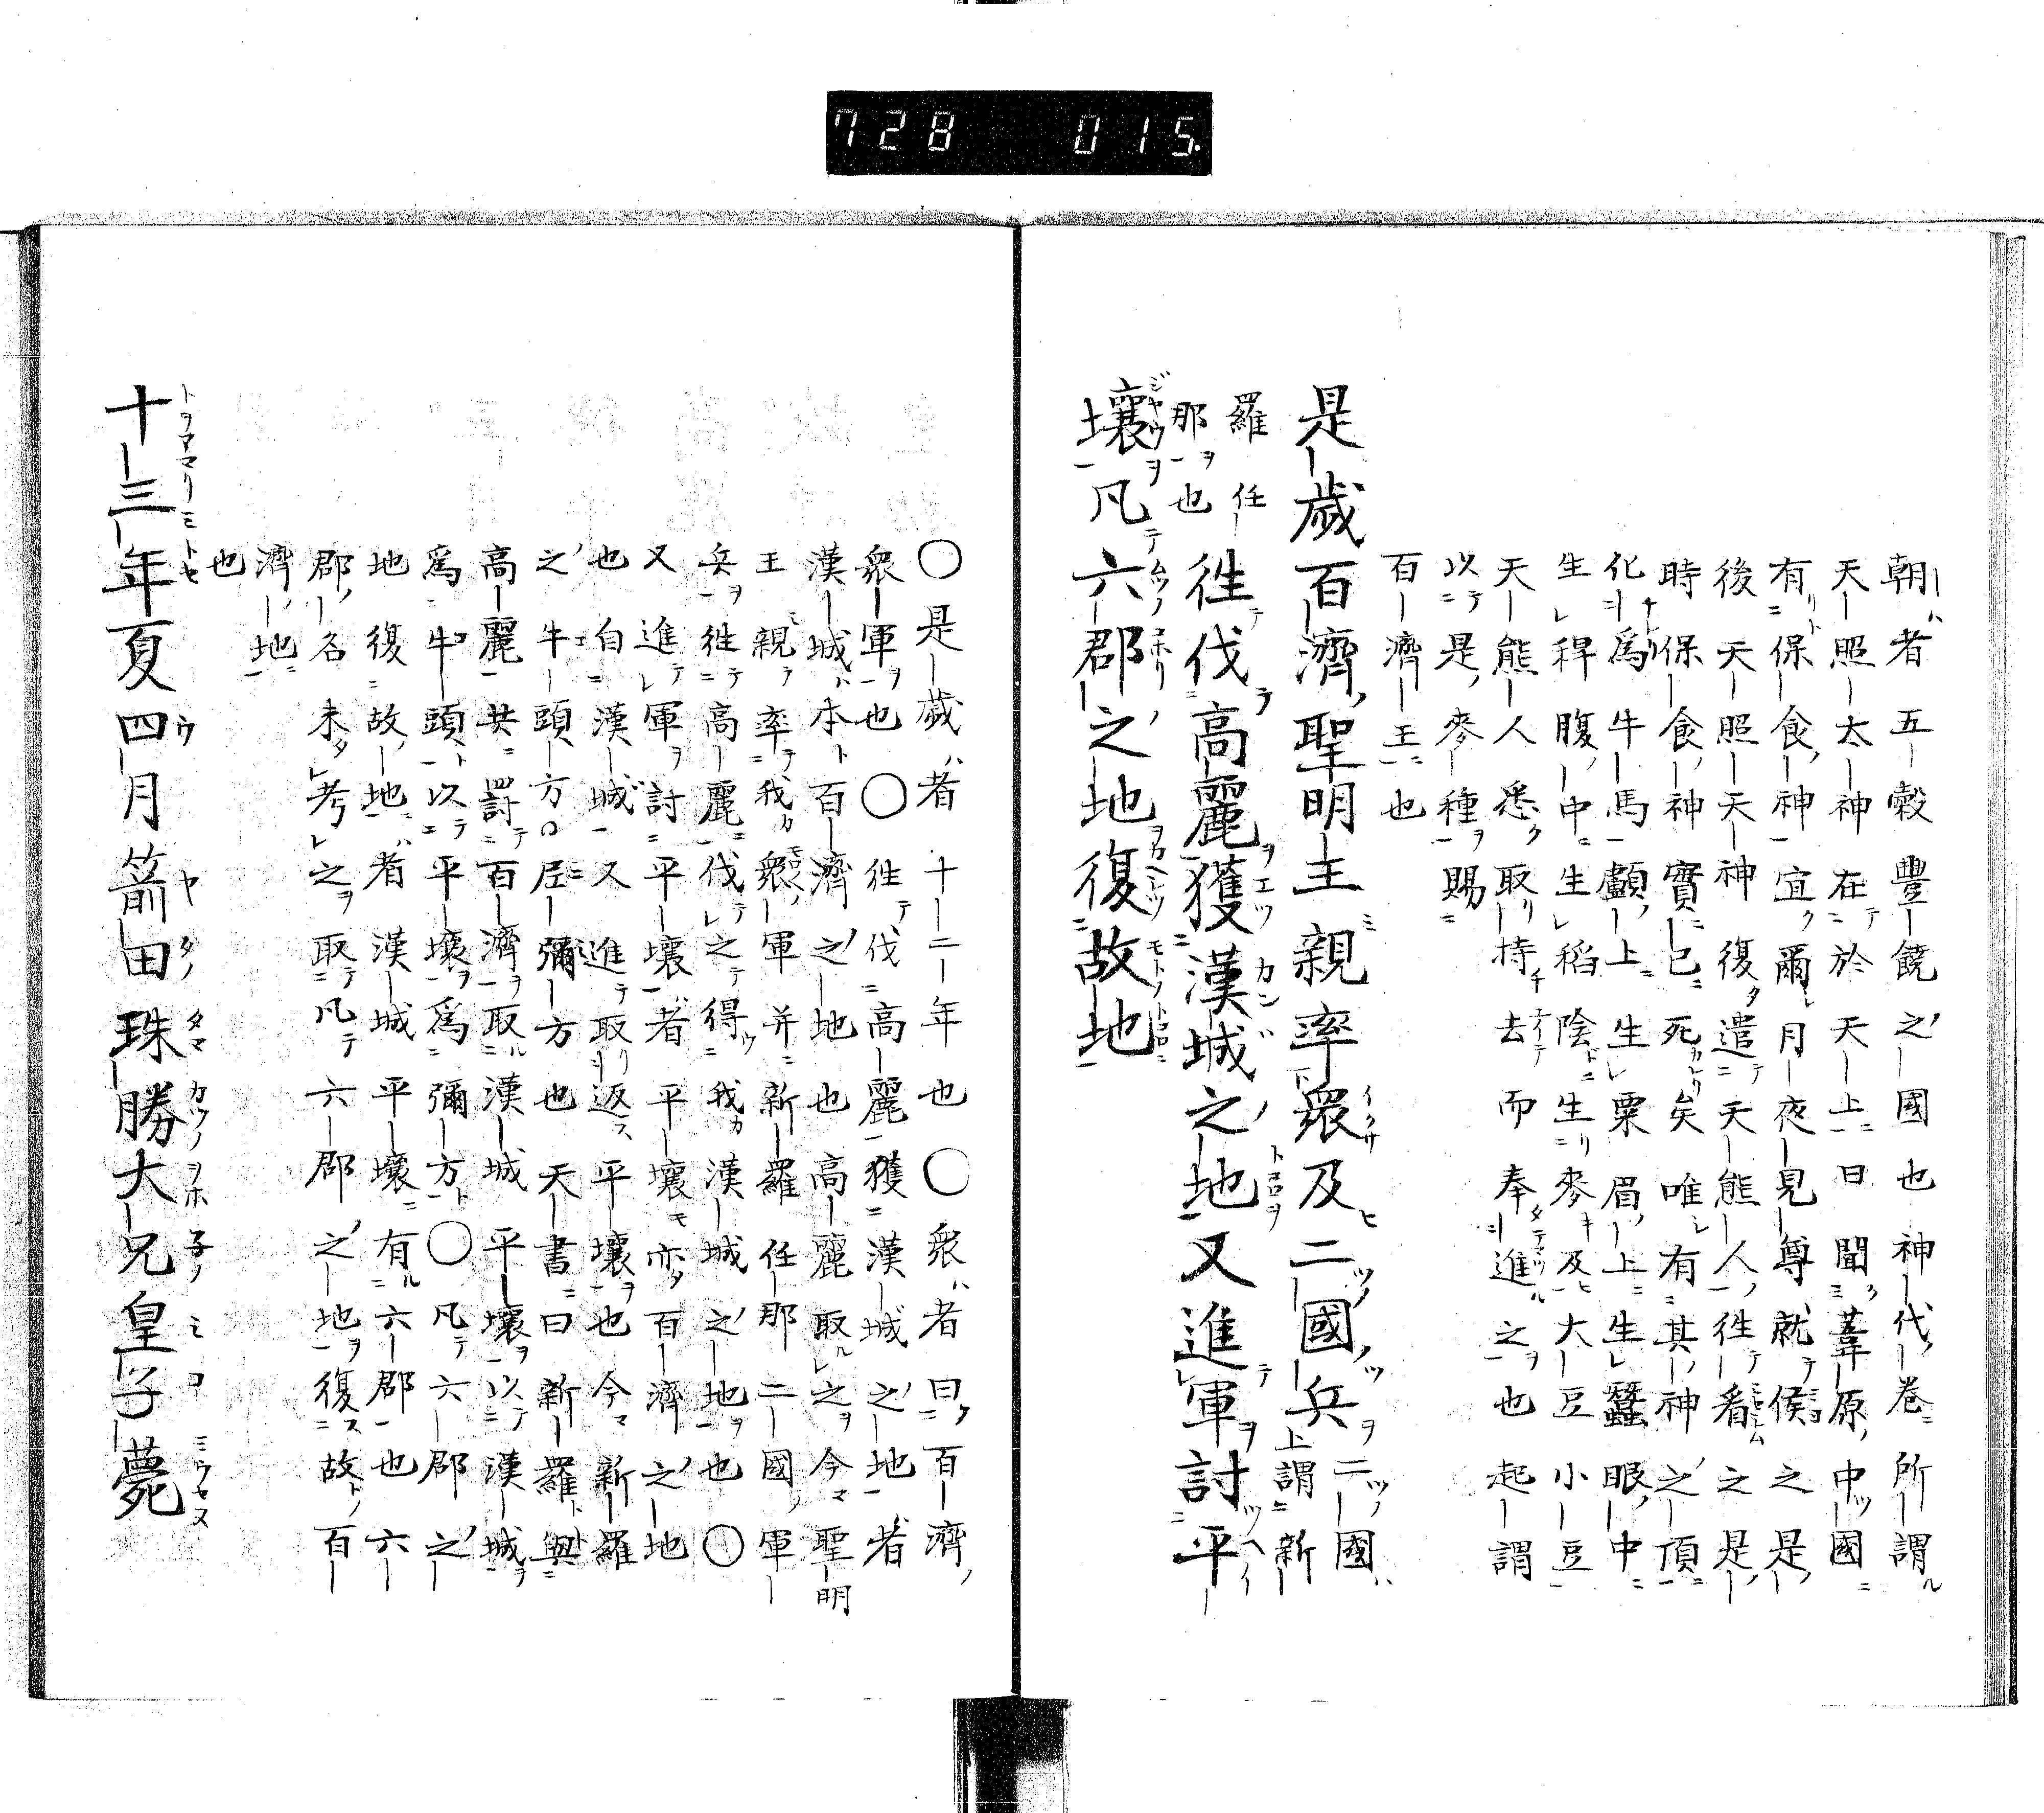 728 015.
朝者五穀豐饒之國也神代卷所謂
天照太神在於天上曰聞葦原中國
有保食神宜爾月夜見尊就候之是
後天照天神復遣天熊人往看之是
時保食神實已死矣唯有其神之頂
化爲牛馬顱上生粟眉上生蠶眼中
生稗腹中生稻陰生麥及大豆小豆
天熊人悉取持去而奉進之也起謂
以是麥種賜
百濟王也
是歲百濟聖明王親率衆及二國兵二國
上謂新
羅任
那也
往伐高麗獲漢城之地又進軍討平
壤凡六郡之地復故地
〇是歲者十二年也〇衆者曰百濟
衆軍也〇往伐高麗獲漢城之地者
漢城本百濟之地也高麗取之今聖明
王親率我衆軍并新羅任那二國軍
兵往高麗伐之得我漢城之地也〇
又進軍討平壤者平壤亦百濟之地
也自漢城又進取返平壤也今新羅
之牛頭方尼彌方也天書曰新羅與
高麗共罸百濟取漢城平壤以漢城
爲牛頭以平壤爲彌方〇凡六郡之
地復故地者漢城平壤有六郡也六
郡名未考之取凡六郡之地復故百
濟地
也
十三年夏四月箭田珠勝大兄皇子薨